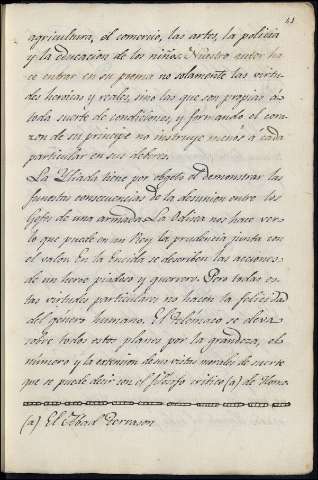 41
agricultura, el comercio, las artes, la policia
y la educacion de los niños. Nuestro autor ha
ce entrar en su poema no solamente las virtu
des heroicas y reales, sino las que son propias á
toda suerte de condiciones, y formando el cora
zon de su principe no instruye menos á cada
particular en sus deberes.
La Yliada tiene por objeto el demostrar las
funestas consecuencias de la desunion entre los
Gefes de una armada. La Odisea nos hace ver
lo que puede en un Rey la prudencia junta con
el valor. En la Eneida se describen las acciones
de un heroe piadoso y guerrero. Pero todas es
tas virtudes particulares no hacen la felicidad
del género humano. El Telémaco se eleva
sobre todos estos planes por la grandeza, el
número y la extension de sus vistas morales de suerte
que se puede decir con el filosofo critico (a) de Home
(a) El Abad Terrason